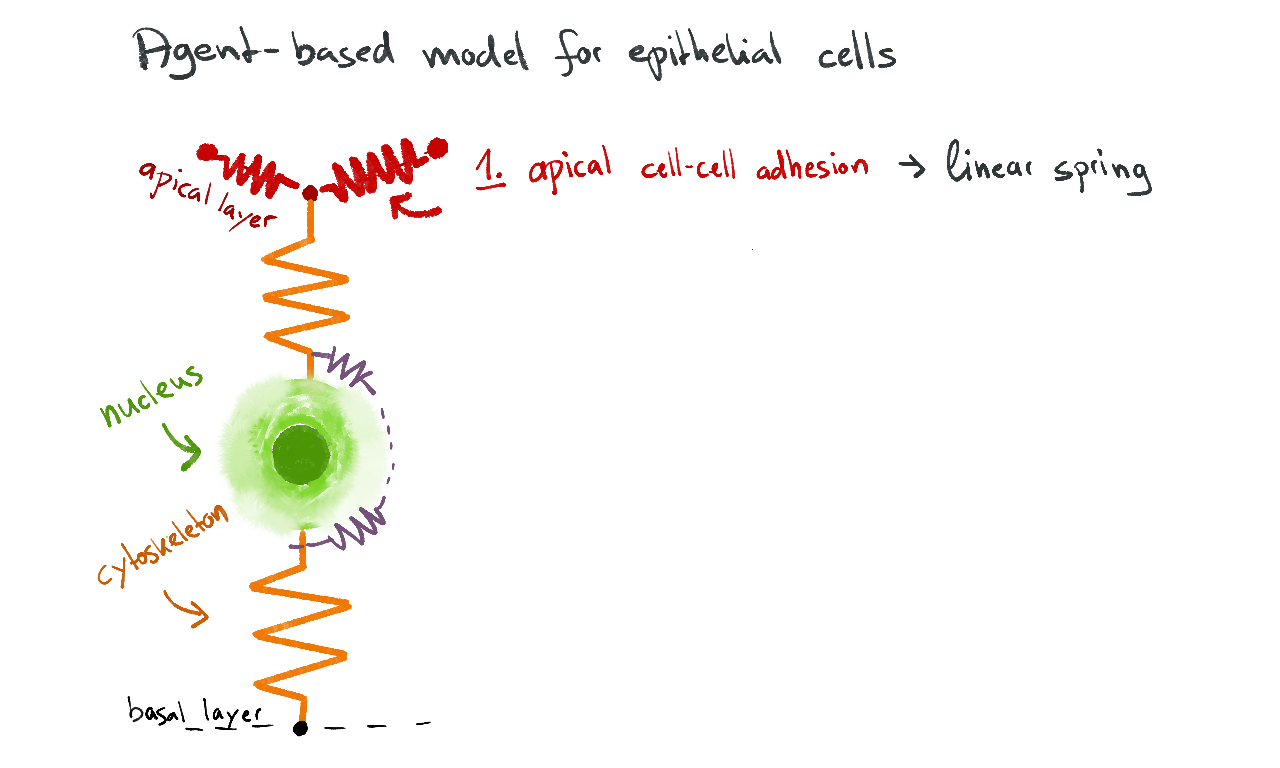 Agent-based model for epithelial cells
apical layer
1. apical cell-cell adhesion → linear spring
nucleus
cytoskeleton
basal layer